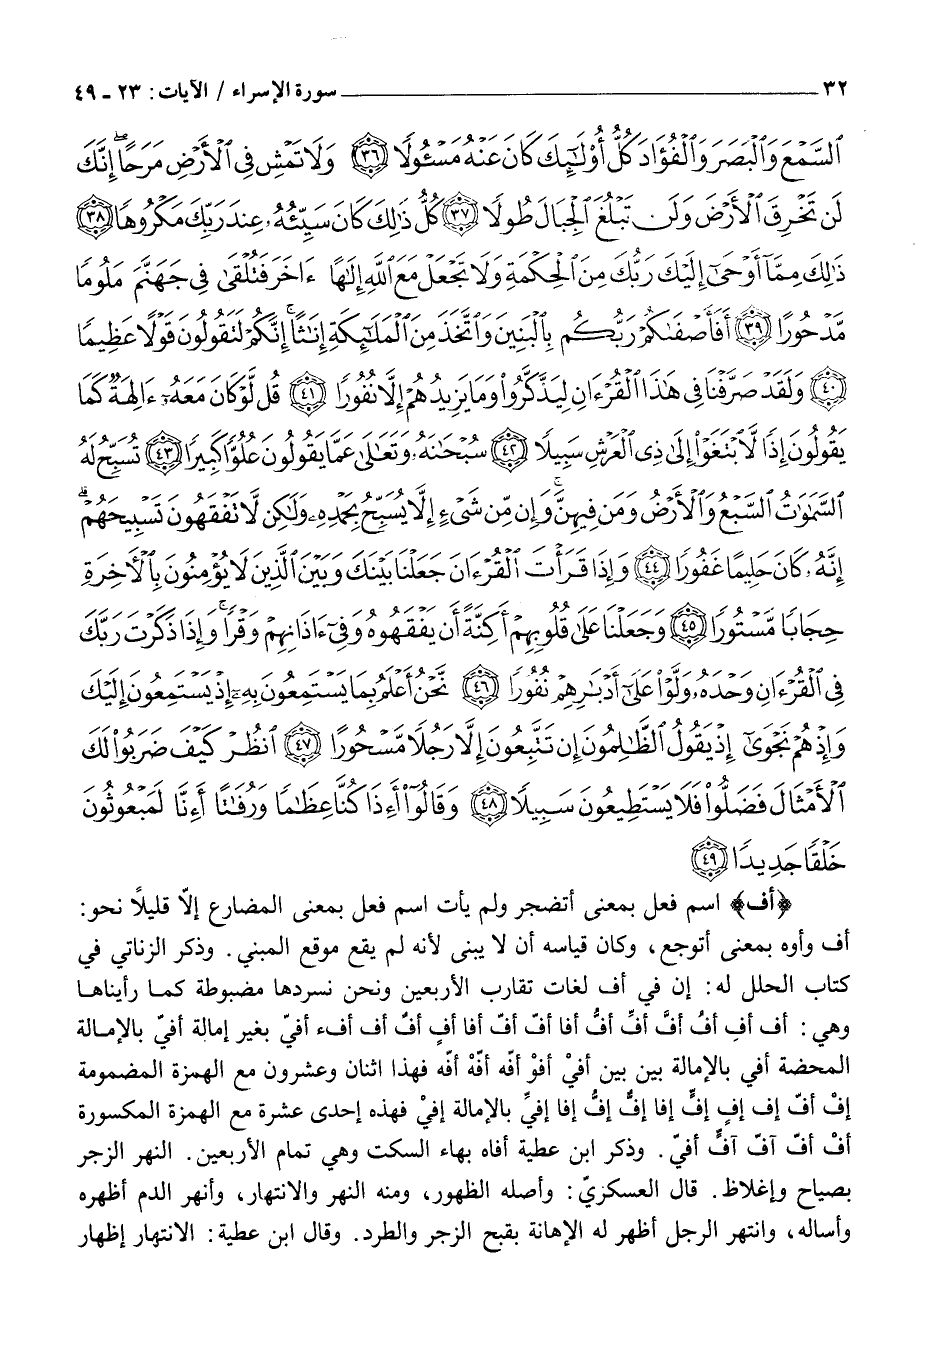 ٣٢ سورة الإسراء / الآيات: ٢٣ ـ ٤٩
ٱلسَّمْعَ وَٱلْبَصَرَ وَٱلْفُؤَادَ كُلُّ أُوْلَٰٓئِكَ كَانَ عَنْهُ مَسْـُٔولًا ٣٦ وَلَا تَمْشِ فِى ٱلْأَرْضِ مَرَحًا ۖ إِنَّكَ
لَن تَخْرِقَ ٱلْأَرْضَ وَلَن تَبْلُغَ ٱلْجِبَالَ طُولًا ٣٧ كُلُّ ذَٰلِكَ كَانَ سَيِّئُهُۥ عِندَ رَبِّكَ مَكْرُوهًا ٣٨
ذَٰلِكَ مِمَّآ أَوْحَىٰٓ إِلَيْكَ رَبُّكَ مِنَ ٱلْحِكْمَةِ وَلَا تَجْعَلْ مَعَ ٱللَّهِ إِلَٰهًا ءَاخَرَ فَتُلْقَىٰ فِى جَهَنَّمَ مَلُومًا
مَّدْحُورًا ٣٩ أَفَأَصْفَىٰكُمْ رَبُّكُم بِٱلْبَنِينَ وَٱتَّخَذَ مِنَ ٱلْمَلَٰٓئِكَةِ إِنَٰثًا ۚ إِنَّكُمْ لَتَقُولُونَ قَوْلًا عَظِيمًا
٤٠ وَلَقَدْ صَرَّفْنَا فِى هَٰذَا ٱلْقُرْءَانِ لِيَذَّكَّرُوا۟ وَمَا يَزِيدُهُمْ إِلَّا نُفُورًا ٤١ قُل لَّوْ كَانَ مَعَهُۥٓ ءَالِهَةٌ كَمَا
يَقُولُونَ إِذًا لَّٱبْتَغَوْا۟ إِلَىٰ ذِى ٱلْعَرْشِ سَبِيلًا ٤٢ سُبْحَٰنَهُۥ وَتَعَٰلَىٰ عَمَّا يَقُولُونَ عُلُوًّا كَبِيرًا ٤٣ تُسَبِّحُ لَهُ
ٱلسَّمَٰوَٰتُ ٱلسَّبْعُ وَٱلْأَرْضُ وَمَن فِيهِنَّ ۚ وَإِن مِّن شَىْءٍ إِلَّا يُسَبِّحُ بِحَمْدِهِۦ وَلَٰكِن لَّا تَفْقَهُونَ تَسْبِيحَهُمْ ۗ
إِنَّهُۥ كَانَ حَلِيمًا غَفُورًا ٤٤ وَإِذَا قَرَأْتَ ٱلْقُرْءَانَ جَعَلْنَا بَيْنَكَ وَبَيْنَ ٱلَّذِينَ لَا يُؤْمِنُونَ بِٱلْأَخِرَةِ
حِجَابًا مَّسْتُورًا ٤٥ وَجَعَلْنَا عَلَىٰ قُلُوبِهِمْ أَكِنَّةً أَن يَفْقَهُوهُ وَفِىٓ ءَاذَانِهِمْ وَقْرًا ۚ وَإِذَا ذَكَرْتَ رَبَّكَ
فِى ٱلْقُرْءَانِ وَحْدَهُۥ وَلَّوْا۟ عَلَىٰٓ أَدْبَٰرِهِمْ نُفُورًا ٤٦ نَّحْنُ أَعْلَمُ بِمَا يَسْتَمِعُونَ بِهِۦٓ إِذْ يَسْتَمِعُونَ إِلَيْكَ
وَإِذْ هُمْ نَجْوَىٰٓ إِذْ يَقُولُ ٱلظَّٰلِمُونَ إِن تَتَّبِعُونَ إِلَّا رَجُلًا مَّسْحُورًا ٤٧ ٱنظُرْ كَيْفَ ضَرَبُوا۟ لَكَ
ٱلْأَمْثَالَ فَضَلُّوا۟ فَلَا يَسْتَطِيعُونَ سَبِيلًا ٤٨ وَقَالُوٓا۟ أَءِذَا كُنَّا عِظَٰمًا وَرُفَٰتًا أَءِنَّا لَمَبْعُوثُونَ
خَلْقًا جَدِيدًا ٤٩
﴿أف﴾ اسم فعل بمعنى أتضجر ولم يأت اسم فعل بمعنى المضارع إلّا قليلًا نحو:
أف وأوه بمعنى أتوجع، وكان قياسه أن لا يبنى لأنه لم يقع موقع المبني. وذكر الزناتي في
كتاب الحلل له: إن في أف لغات تقارب الأربعين ونحن نسردها مضبوطة كما رأيناها
وهي: أف أفِ أفُ أفَّ أفِّ أفُّ أفا أفّ أفّ أفا أفٍ أفٌ أف أفء أفيّ بغير إمالة أفيّ بالإمالة
المحضة أفي بالإمالة بين بين أفيْ أفوْ أفّه أفّهْ أفّه فهذا اثنان وعشرون مع الهمزة المضمومة
إفْ أفّ إف إفٍ إفٍّ إفا إفٌّ إفُّ إفا إفيِّ بالإمالة إفيْ فهذه إحدى عشرة مع الهمزة المكسورة
أفْ أفّ آفّ آفٍّ أفيّ. وذكر ابن عطية أفاه بهاء السكت وهي تمام الأربعين. النهر الزجر
بصياح وإغلاظ. قال العسكريّ: وأصله الظهور، ومنه النهر والانتهار، وأنهر الدم أظهره
وأساله، وانتهر الرجل أظهر له الإهانة بقبح الزجر والطرد. وقال ابن عطية: الانتهار إظهار